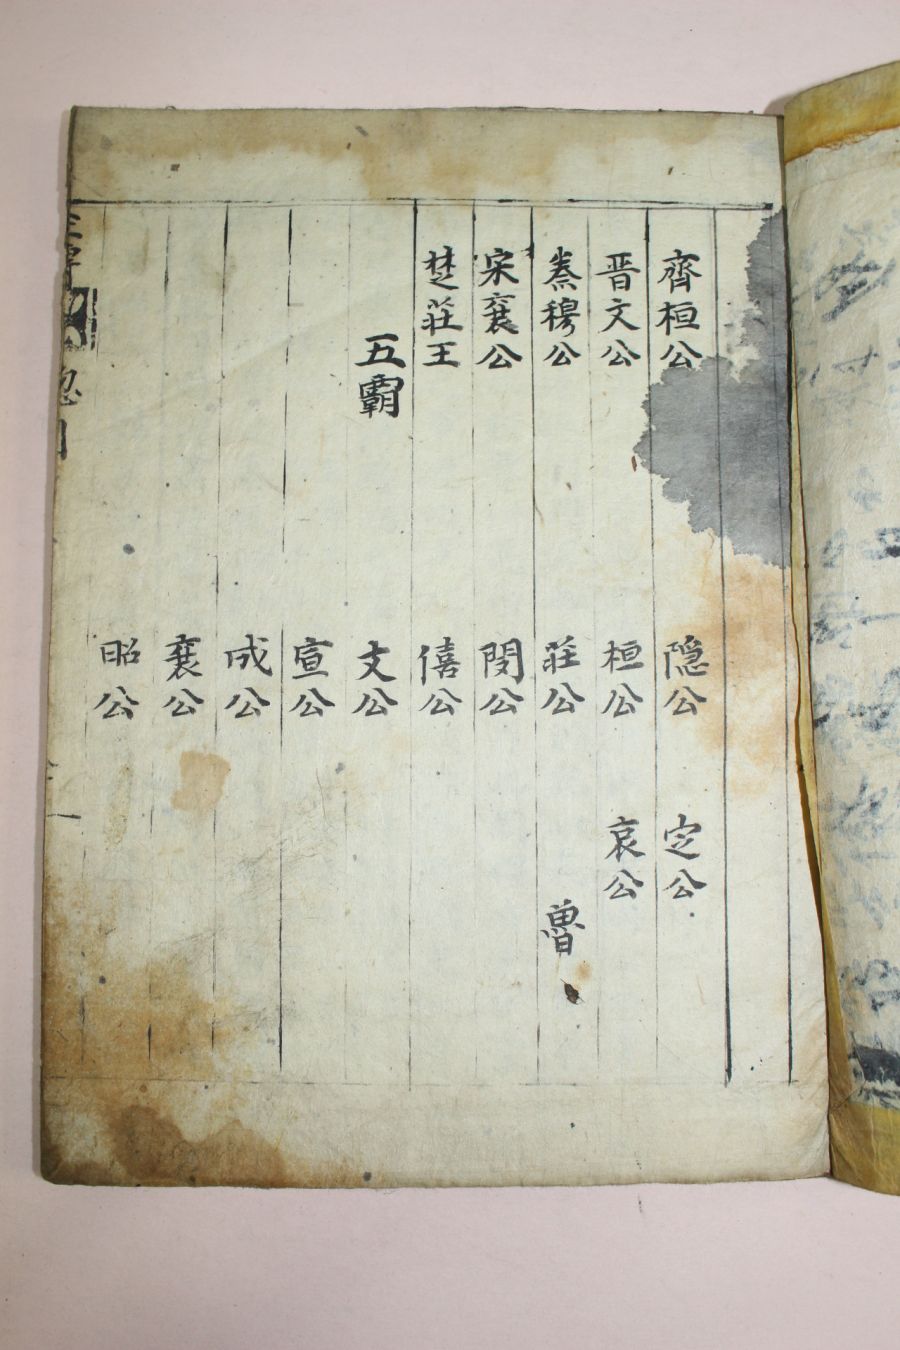 齊桓公
晋文公
秦穆公
宋襄公
楚莊王
五霸
隱公
桓公
莊公
閔公
僖公
文公
宣公
成公
襄公
昭公
定公
哀公
魯